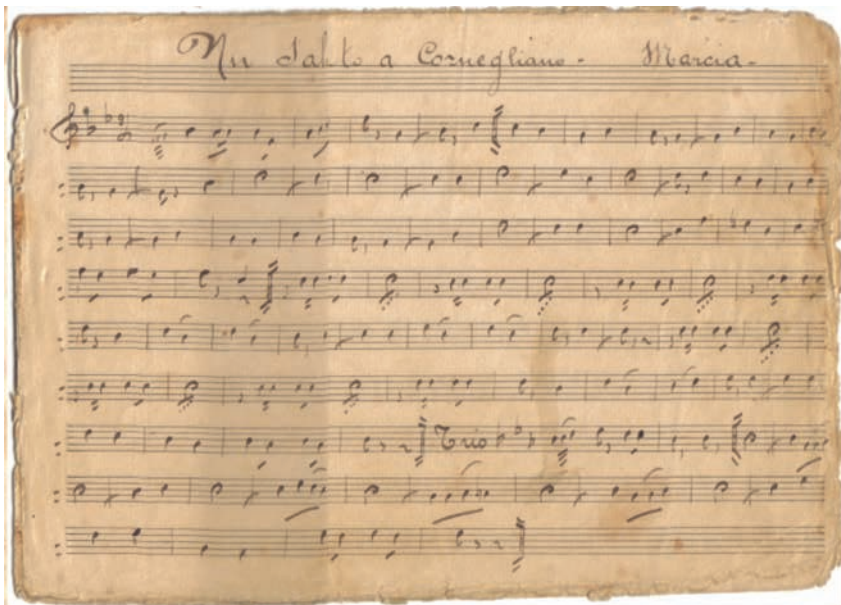 Un Salto a Cornegliano - Marcia -
Trio